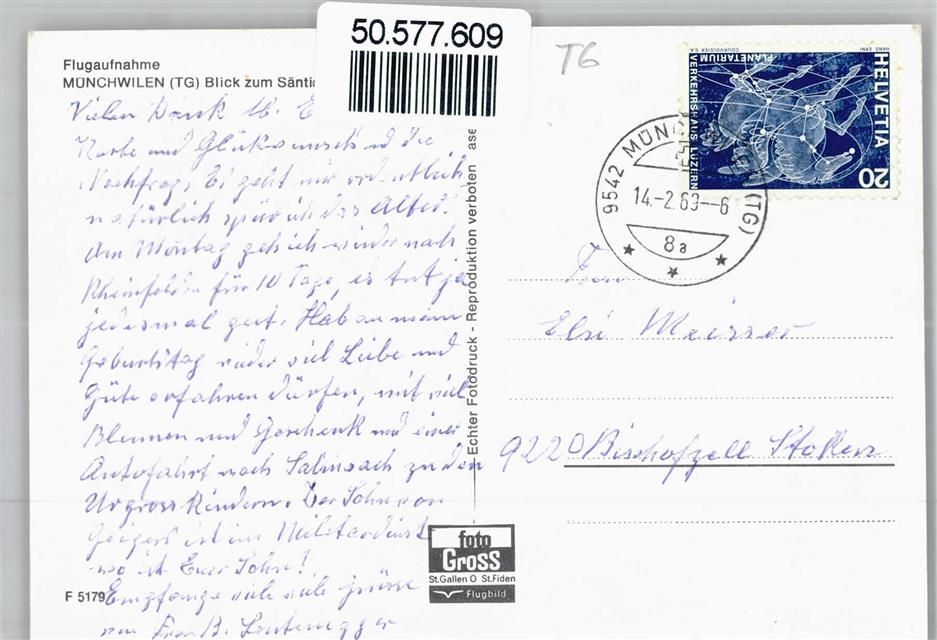 50.577.609
T6
Flugaufnahme
MÜNCHWILEN (TG) Blick zum Sänti
Vielen Dank lb. E
Karte und Glückwunsch u die
Nachfrag, Es geht mir ordentlich
natürlich spür ich das Alter.
Am Montag geh ich wieder nach
Rheinfelden für 10 Tage, es tut ja
jedesmal gut. Hab an mein
Geburtstag wieder viel Liebe und
Güte erfahren dürfen, mit viel
Blumen und Geschenk und einer
Autofahrt nach Salmsach zu den
Urgrosskindern. Der Sohn von
Geigers ist im Militärdienst
wo ist Euer Sohn!
Empfange viele viele Grüsse
von Frau B.
F 5179
Echter Fotodruck - Reproduktion verboten ase
foto
Gross
St.Gallen O St.Fiden
Flugbild
HELVETIA
20
PLANETARIUM
VERKEHRSHAUS LUZERN
HANS ERNI
COURVOISIER S.A.
9542 MÜNCHWILEN (TG)
14.-2.69--6
8a
Frau
Elsi Meisser
9220 Bischofzell Stocken